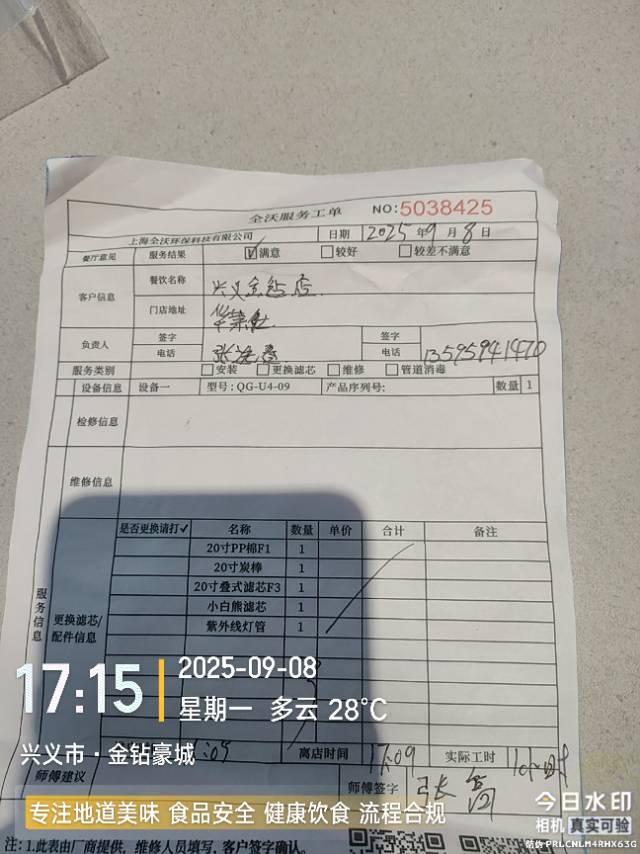 全沃服务工单 NO:5038425
上海全沃环保科技有限公司 日期 2025年9月8日
餐厅意见 服务结果 ☑满意 □较好 □较差不满意
客户信息 餐饮名称 兴义金钻店
门店地址
负责人 签字 电话 签字 电话 13595941470
服务类别 □安装 □更换滤芯 □维修 □管道消毒
设备信息 设备一 型号:QG-U4-09 产品序列号: 数量 1
检修信息
维修信息
服务信息
更换滤芯/配件信息
是否更换请打✓ 名称 数量 单价 合计 备注
20寸PP棉F1 1
20寸炭棒 1
20寸叠式滤芯F3 1
小白熊滤芯 1
紫外线灯管 1
:09 离店时间 17:09 实际工时
师傅建议 师傅签字
注:1.此表由厂商提供、维修人员填写,客户签字确认。
17:15 2025-09-08
星期一 多云 28°C
兴义市·金钻豪城
专注地道美味 食品安全 健康饮食 流程合规
今日水印
相机 真实可验
防伪 PRLCNLM4RHX63G